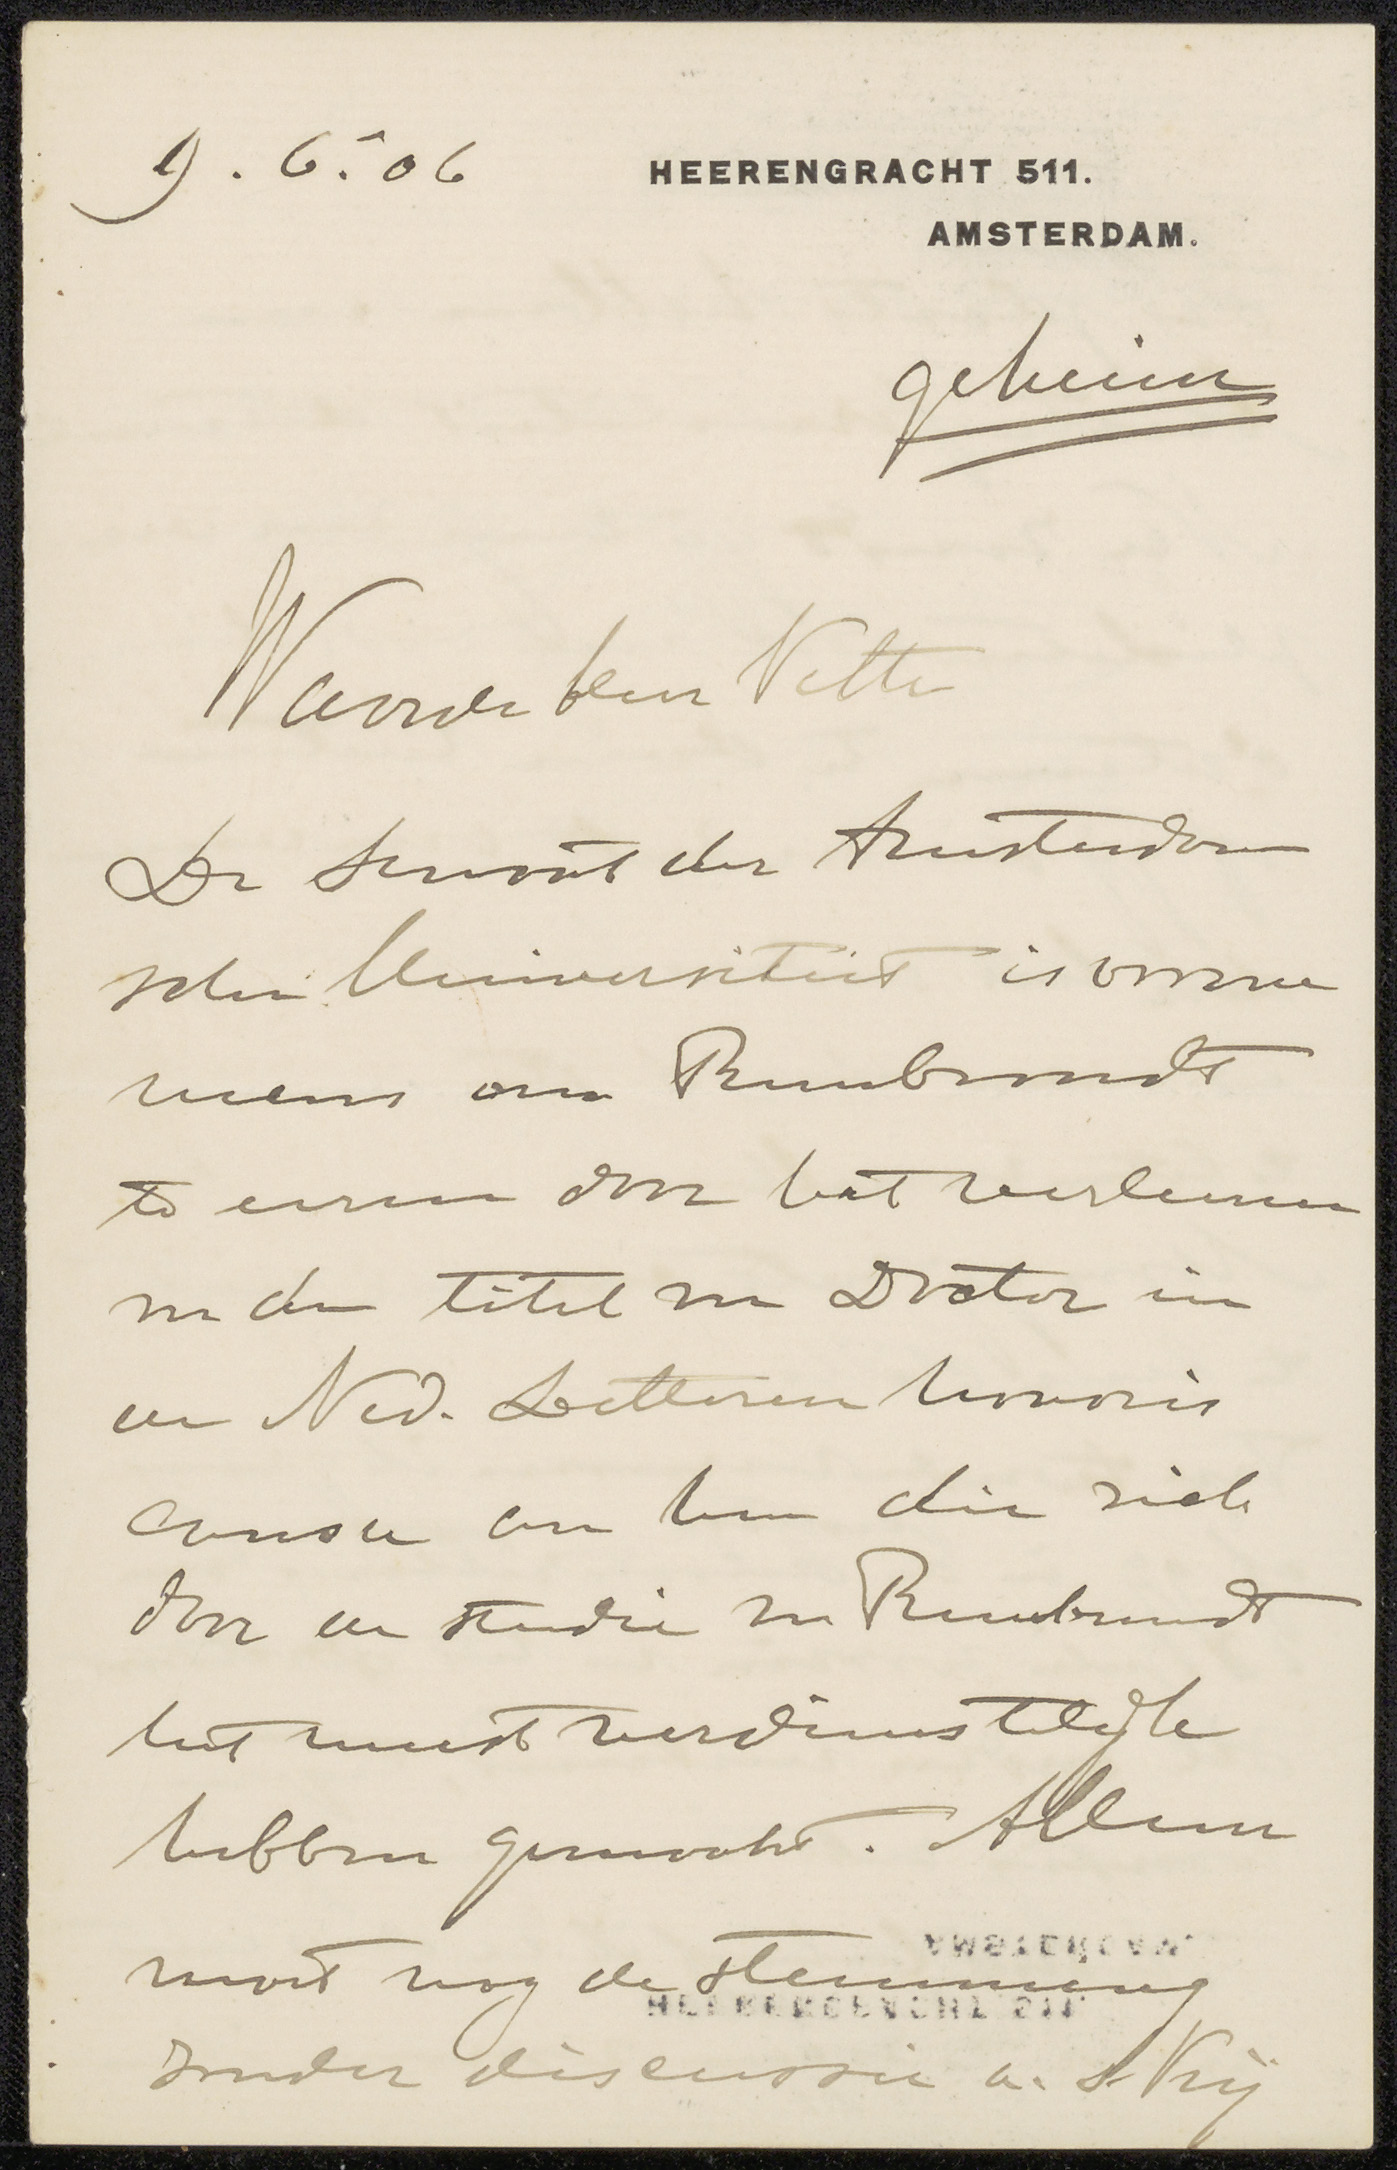 9.6.'06
HEERENGRACHT 511.
AMSTERDAM.
geheim
Waarde heer Veth
De Senaat der Amsterdam
sche Universiteit is voorne
mens om Rembrandt
te eeren door het verleenen
van den titel van Doctor in
de Ned. Letteren honoris
causa aan hen die zich
door de studie van Rembrandt
het meest verdienstelijk
hebben gemaakt. Alleen
moet nog de stemming
zonder discussie a. s. Vrij